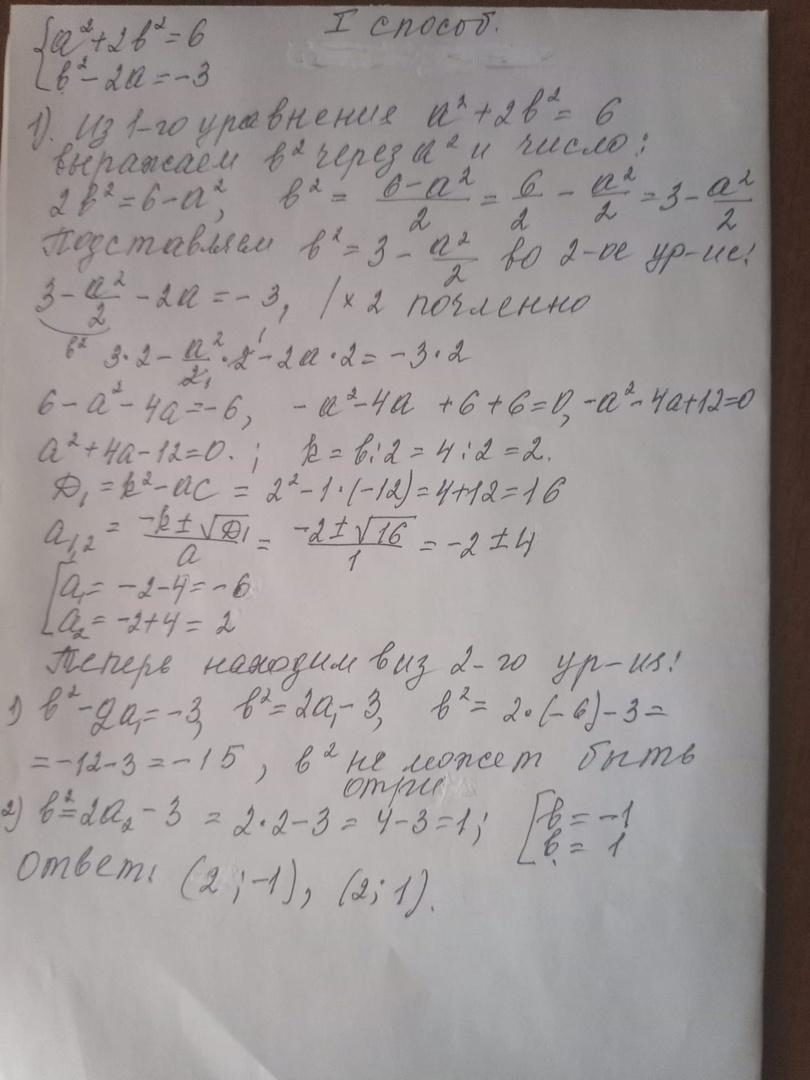 I способ.
{a²+2b²=6
{b²-2a=-3
1). Из 1-го уравнения a²+2b²= 6
выражаем b² через a² и число:
2b²=6-a², b² = (6-a²)/2 = 6/2 - a²/2 = 3- a²/2
Подставляем b²=3- a²/2 во 2-ое ур-ие:
3- a²/2 -2a = -3, /×2 почленно
b² 3·2- a²/2₁ ·2¹ -2a·2= -3·2
6-a²-4a=-6, -a²-4a +6+6=0, -a²-4a+12=0
a²+4a-12=0. ; k = b:2 = 4:2 = 2.
D₁ = k²-ac = 2²-1·(-12)=4+12=16
a₁,₂ = (-k±√D₁)/a = (-2±√16)/1 = -2±4
[a₁= -2-4=-6
[a₂= -2+4= 2
Теперь находим b из 2-го ур-ия:
1) b²-2a₁=-3, b²=2a₁-3, b²= 2·(-6)-3=
=-12-3=-15, b² не может быть
отри
2) b²=2a₂-3 = 2·2-3=4-3=1; [b=-1
[b= 1
Ответ: (2;-1), (2;1).